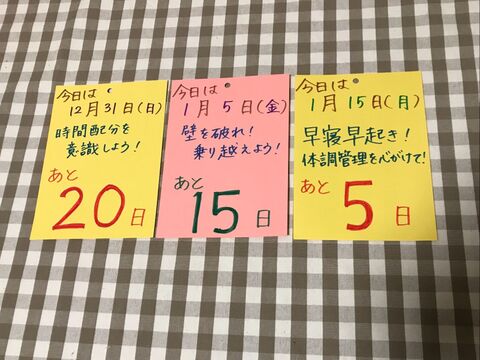 今日は
12月31日(日)
時間配分を
意識しよう!
あと
20日
今日は
1月5日(金)
壁を破れ!
乗り越えよう!
あと
15日
今日は
1月15日(月)
早寝早起き!
体調管理を心がけて!
あと
5日